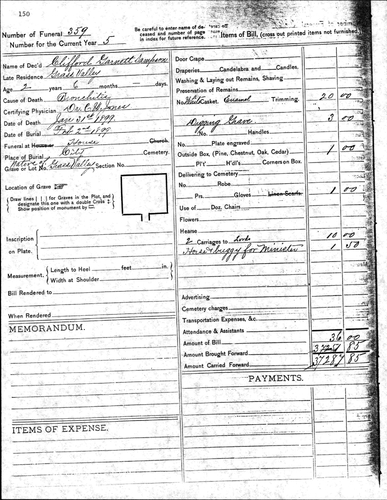 150
Number of Funeral 359
Number for the Current Year 5
Be carefully to enter name of deceased and number of page in index for future reference.
Name of Dec'd Clifford Garnett Sampson
Late Residence Grass Valley
Age, 2 years 6 months days.
Cause of Death Bronchitis
Certifying Physician Dr. Jones
Date of Death Jan 31st 1899.
Date of Burial Feb 2nd 1899
Funeral at House Church
Place of Burial Cemetery.
Native of Grass Valley
Grave or Lot No. Section No.
Location of Grave
Draw lines for Graves in the Plot, and designate this one with a double Cross
Show position of monument by
Inscription
on Plate.
Measurement, Length to Heel feet in.
Width at Shoulder
Bill Rendered to
When Rendered
MEMORANDUM.
ITEMS OF EXPENSE.
Items of Bill, (cross out printed items not furnished.)
Door Crape
Draperies, Candelabra and Candles.
Washing & Laying out Remains, Shaving
Preservation of Remains
No. Casket, Trimming, 20 00
Digging Grave 3 00
No. Handles
Plate engraved
Outside Box (Pine, Chestnut, Oak, Cedar) 1 00
Pl'l H'd'l's Corners on Box
Delivering to Cemetery
No. Robe
Prs. Gloves Linen Scarfs. 1 00
Use of Doz. Chain
Flowers
Hearse 10 00
2 Carriages to
Horse & buggy for Minister 1 50
Advertising
Cemetery charges
Transportation Expenses, &c.
Attendance & Assistants
Amount of Bill 36 00
Amount Brought Forward 85
Amount Carried Forward 37287 85
PAYMENTS.